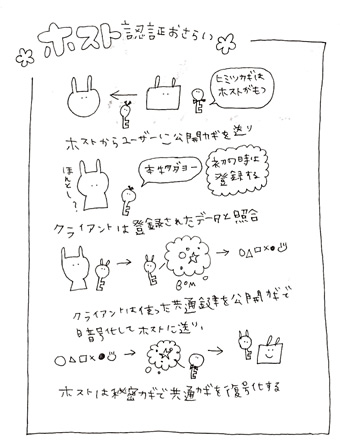 ホスト認証おさらい
ヒミツカギは
ホストがもつ
ホストからユーザーに公開カギを送り
ほんとし?
本物ダヨー
初の時は
登録する
クライアントは登録されたデータと照合
BOM
クライアントは使った共通鍵を公開カギで
暗号化してホストに送り、
ホストは秘密カギで共通カギを復号化する